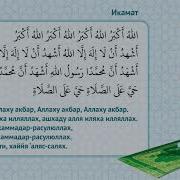 Икамат
اللهُ أَكْبَرُ اللهُ أَكْبَرُ اللهُ أَكْبَرُ اللهُ أَكْبَرُ
أَشْهَدُ أَنْ لَا إِلَهَ إِلَّا اللهُ أَشْهَدُ أَنْ لَا إِلَهَ إِلَّا
أَشْهَدُ أَنَّ مُحَمَّدًا رَسُولُ اللهِ أَشْهَدُ أَنَّ مُحَمَّدً
حَيَّ عَلَى الصَّلَاةِ حَيَّ عَلَى الصَّلَاةِ
лаху акбар, Аллаху акбар, Аллаху акбар.
яха илляллах, ашхаду алля иляха илляллах.
хаммадар-расулюллах,
хаммадар-расулюллах.
ти, хаййя 'аляс-салях.